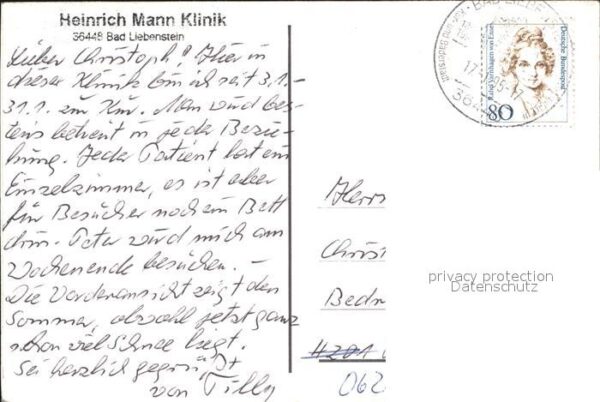 Heinrich Mann Klinik
36448 Bad Liebenstein
Lieber Christoph! Hier in
dieser Klinik bin ich seit 3.1.-
31.1. zur Kur. Man wird bes-
tens betreut in jeder Bezie-
hung. Jeder Patient hat ein
Einzelzimmer, es ist aber
für Besucher noch ein Bett
drin. Peter wird mich am
Wochenende besuchen. –
Die Vorderansicht zeigt den
Sommer, obwohl jetzt ganz
schon viel Schnee liegt.
Sei herzlich gegrüßt
von Tilly
BAD LIEBE
17
95-17
36
Deutsche Bundespost
80
Herrn
Christ
privacy protection
Datenschutz
Bedn
#201
062